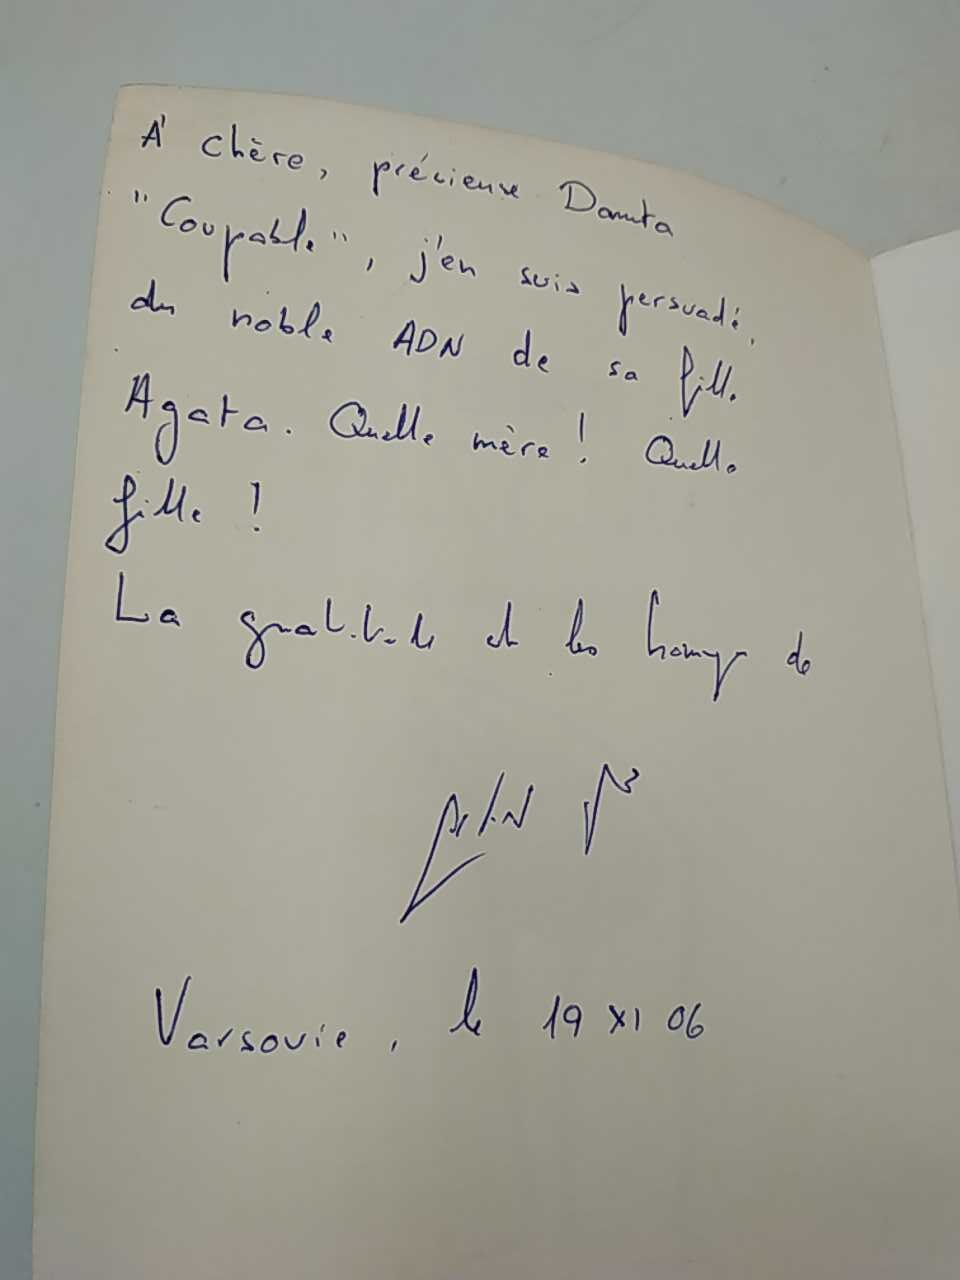 À chère, précieuse Danuta
"Coupable", j'en suis persuadé,
du noble ADN de sa fille
Agata. Quelle mère ! Quelle
fille !
La gratitude et les hommages de
Varsovie, le 19 XI 06